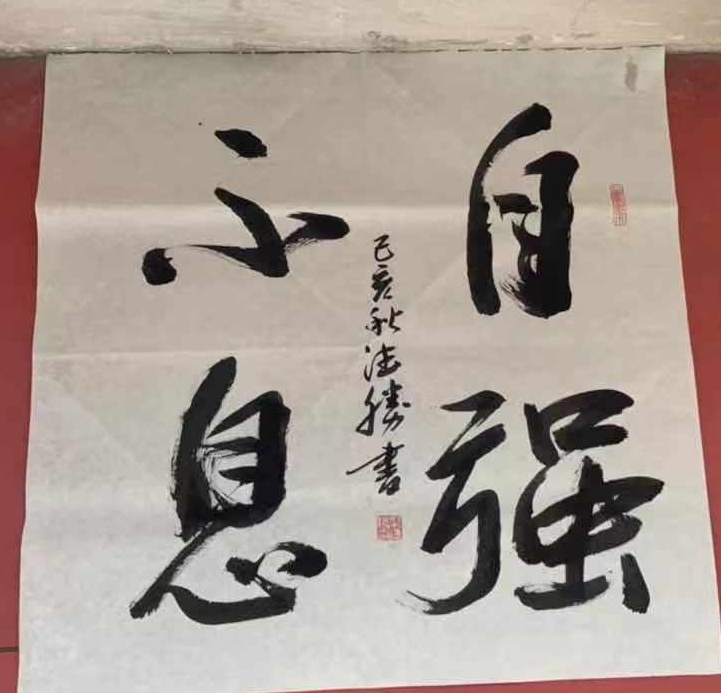 自强
不息
己亥秋法胜书